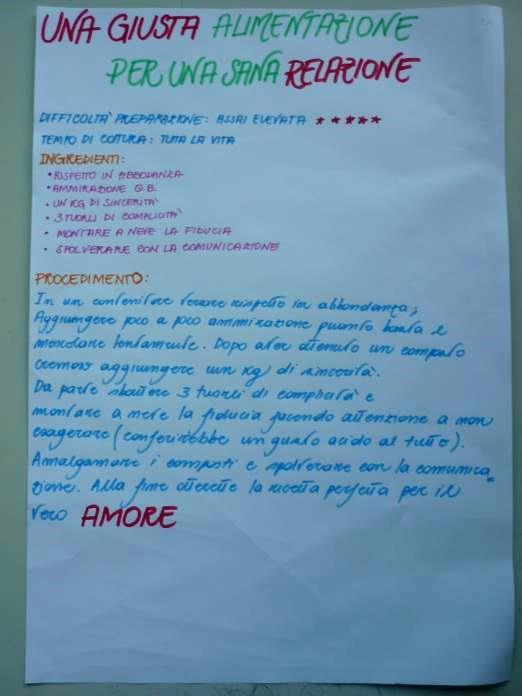 UNA GIUSTA ALIMENTAZIONE
PER UNA SANA RELAZIONE
DIFFICOLTA' PREPARAZIONE: ASSAI ELEVATA ★★★★★
TEMPO DI COTTURA: TUTTA LA VITA
INGREDIENTI:
• RISPETTO IN ABBODANZA
• AMMIRAZIONE Q.B.
• UN KG DI SINCERITA'
• 3 TUORLI DI COMPLICITA'
• MONTARE A NEVE LA FIDUCIA
• SPOLVERARE CON LA COMUNICAZIONE
PROCEDIMENTO:
In un contenitore versare rispetto in abbondanza;
Aggiungere poco a poco ammirazione quanto basta e
mescolare lentamente. Dopo aver ottenuto un composto
cremoso aggiungere un kg di sincerità.
Da parte sbattere 3 tuorli di complicità e
montare a neve la fiducia facendo attenzione a non
esagerare (conferirebbe un gusto acido al tutto).
Amalgamare i composti e spolverare con la comunica
zione. Alla fine otterrete la ricetta perfetta per il
vero AMORE